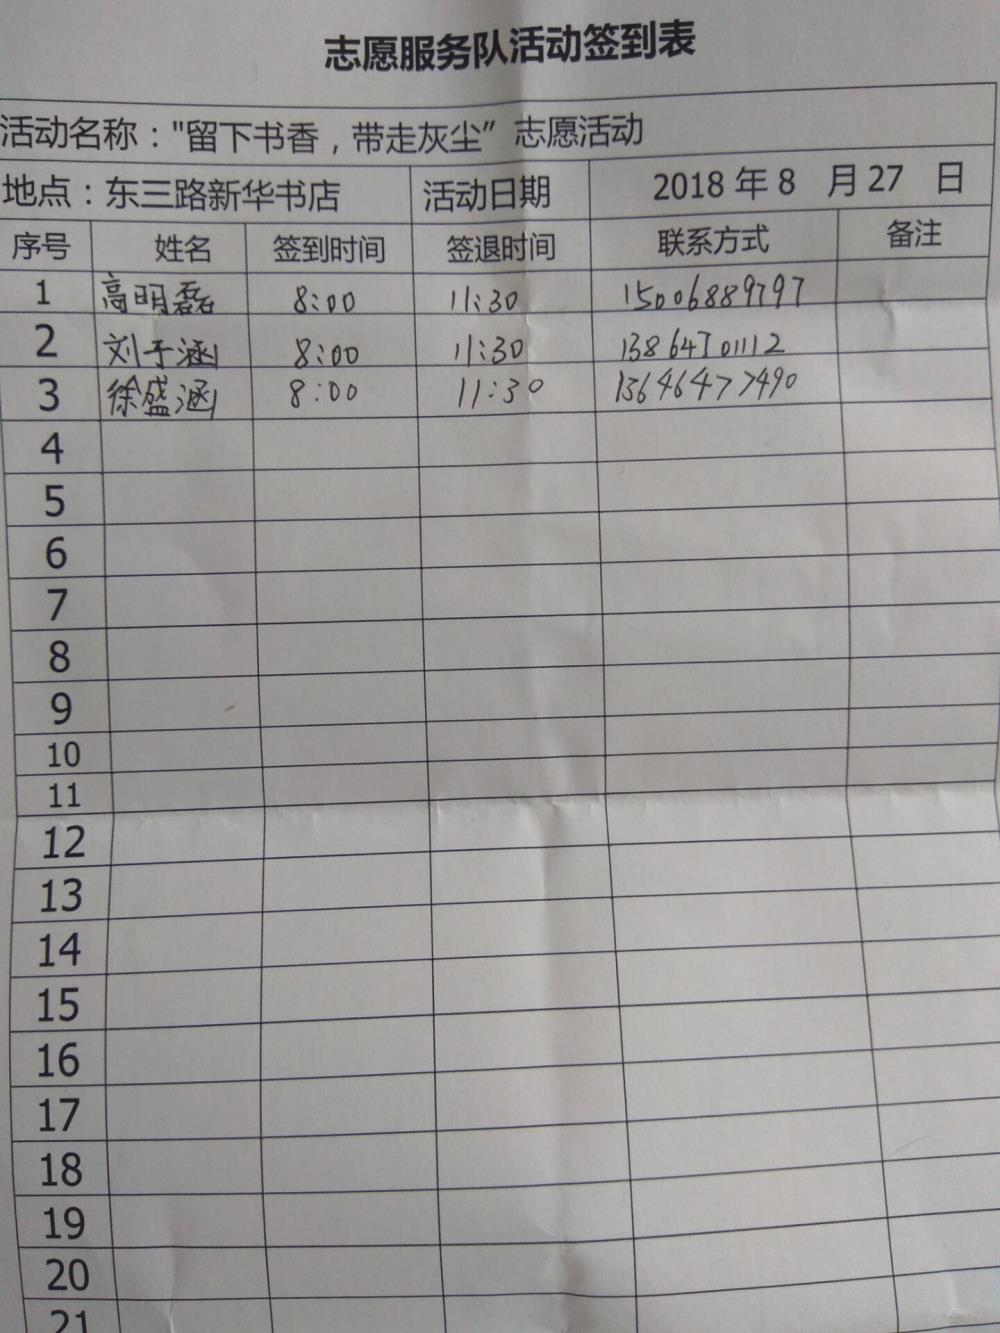 志愿服务队活动签到表
活动名称："留下书香，带走灰尘” 志愿活动
地点：东三路新华书店 活动日期 2018 年 8 月 27 日
序号 姓名 签到时间 签退时间 联系方式 备注
1 高明磊 8:00 11:30 15006889797
2 刘于涵 8:00 11:30
3 徐盛涵 8:00 11:30 13646477490
4
5
6
7
8
9
10
11
12
13
14
15
16
17
18
19
20
21